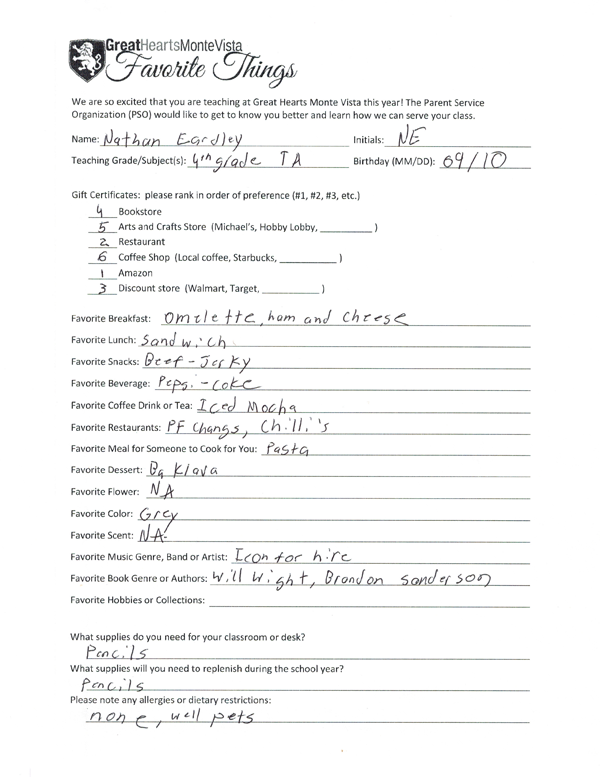 GreatHeartsMonteVista
Favorite Things
We are so excited that you are teaching at Great Hearts Monte Vista this year! The Parent Service
Organization (PSO) would like to get to know you better and learn how we can serve your class.
Name: Nathan Eardley Initials: NE
Teaching Grade/Subject(s): 4th grade TA Birthday (MM/DD): 09/10
Gift Certificates: please rank in order of preference (#1, #2, #3, etc.)
4 Bookstore
5 Arts and Crafts Store (Michael's, Hobby Lobby, __________ )
2 Restaurant
6 Coffee Shop (Local coffee, Starbucks, __________ )
1 Amazon
3 Discount store (Walmart, Target, __________ )
Favorite Breakfast: Omilette, ham and cheese
Favorite Lunch: Sandwich
Favorite Snacks: Beef-Jerky
Favorite Beverage: Pepsi-coke
Favorite Coffee Drink or Tea: Iced Mocha
Favorite Restaurants: PF Changs, Chilli's
Favorite Meal for Someone to Cook for You: Pasta
Favorite Dessert: Baklava
Favorite Flower: NA
Favorite Color: Grey
Favorite Scent: NA
Favorite Music Genre, Band or Artist: Icon for hire
Favorite Book Genre or Authors: Will Wight, Brandon sanderson
Favorite Hobbies or Collections:
What supplies do you need for your classroom or desk?
Pencils
What supplies will you need to replenish during the school year?
Pencils
Please note any allergies or dietary restrictions:
none, well pets